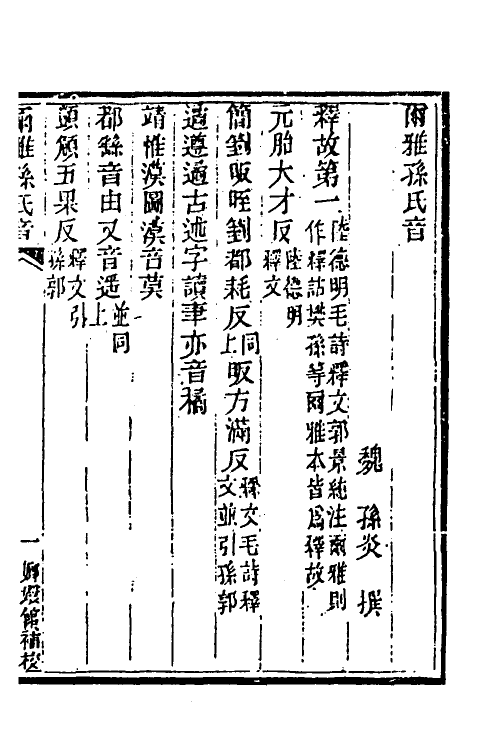 爾雅孫氏音
魏　孫炎　撰
釋故第一陸德明毛詩釋文郭景純注爾雅則作釋詁樊孫等爾雅本皆爲釋故
元胎大才反陸德明釋文
簡劉昄晊劉都耗反同上昄方滿反釋文毛詩釋文並引孫郭
遹遵遹古述字讀聿亦音橘
靖惟漠圖漠音莫
郡繇音由又音遥並同上
頭頠五果反釋文引孫郭
爾雅孫氏音
一
嫏嬛館補校